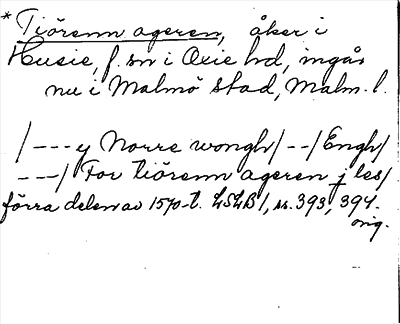 * Tiörenn ageren, åker i
Husie, f. sn i Oxie hd, ingår
nu i Malmö stad, Malm. l.
/---y Norre wongh/--/Engh/
---/ For tiörenn ageren j les/
förra delen av 1570-t. LSLB 1, s. 393, 394.
orig.